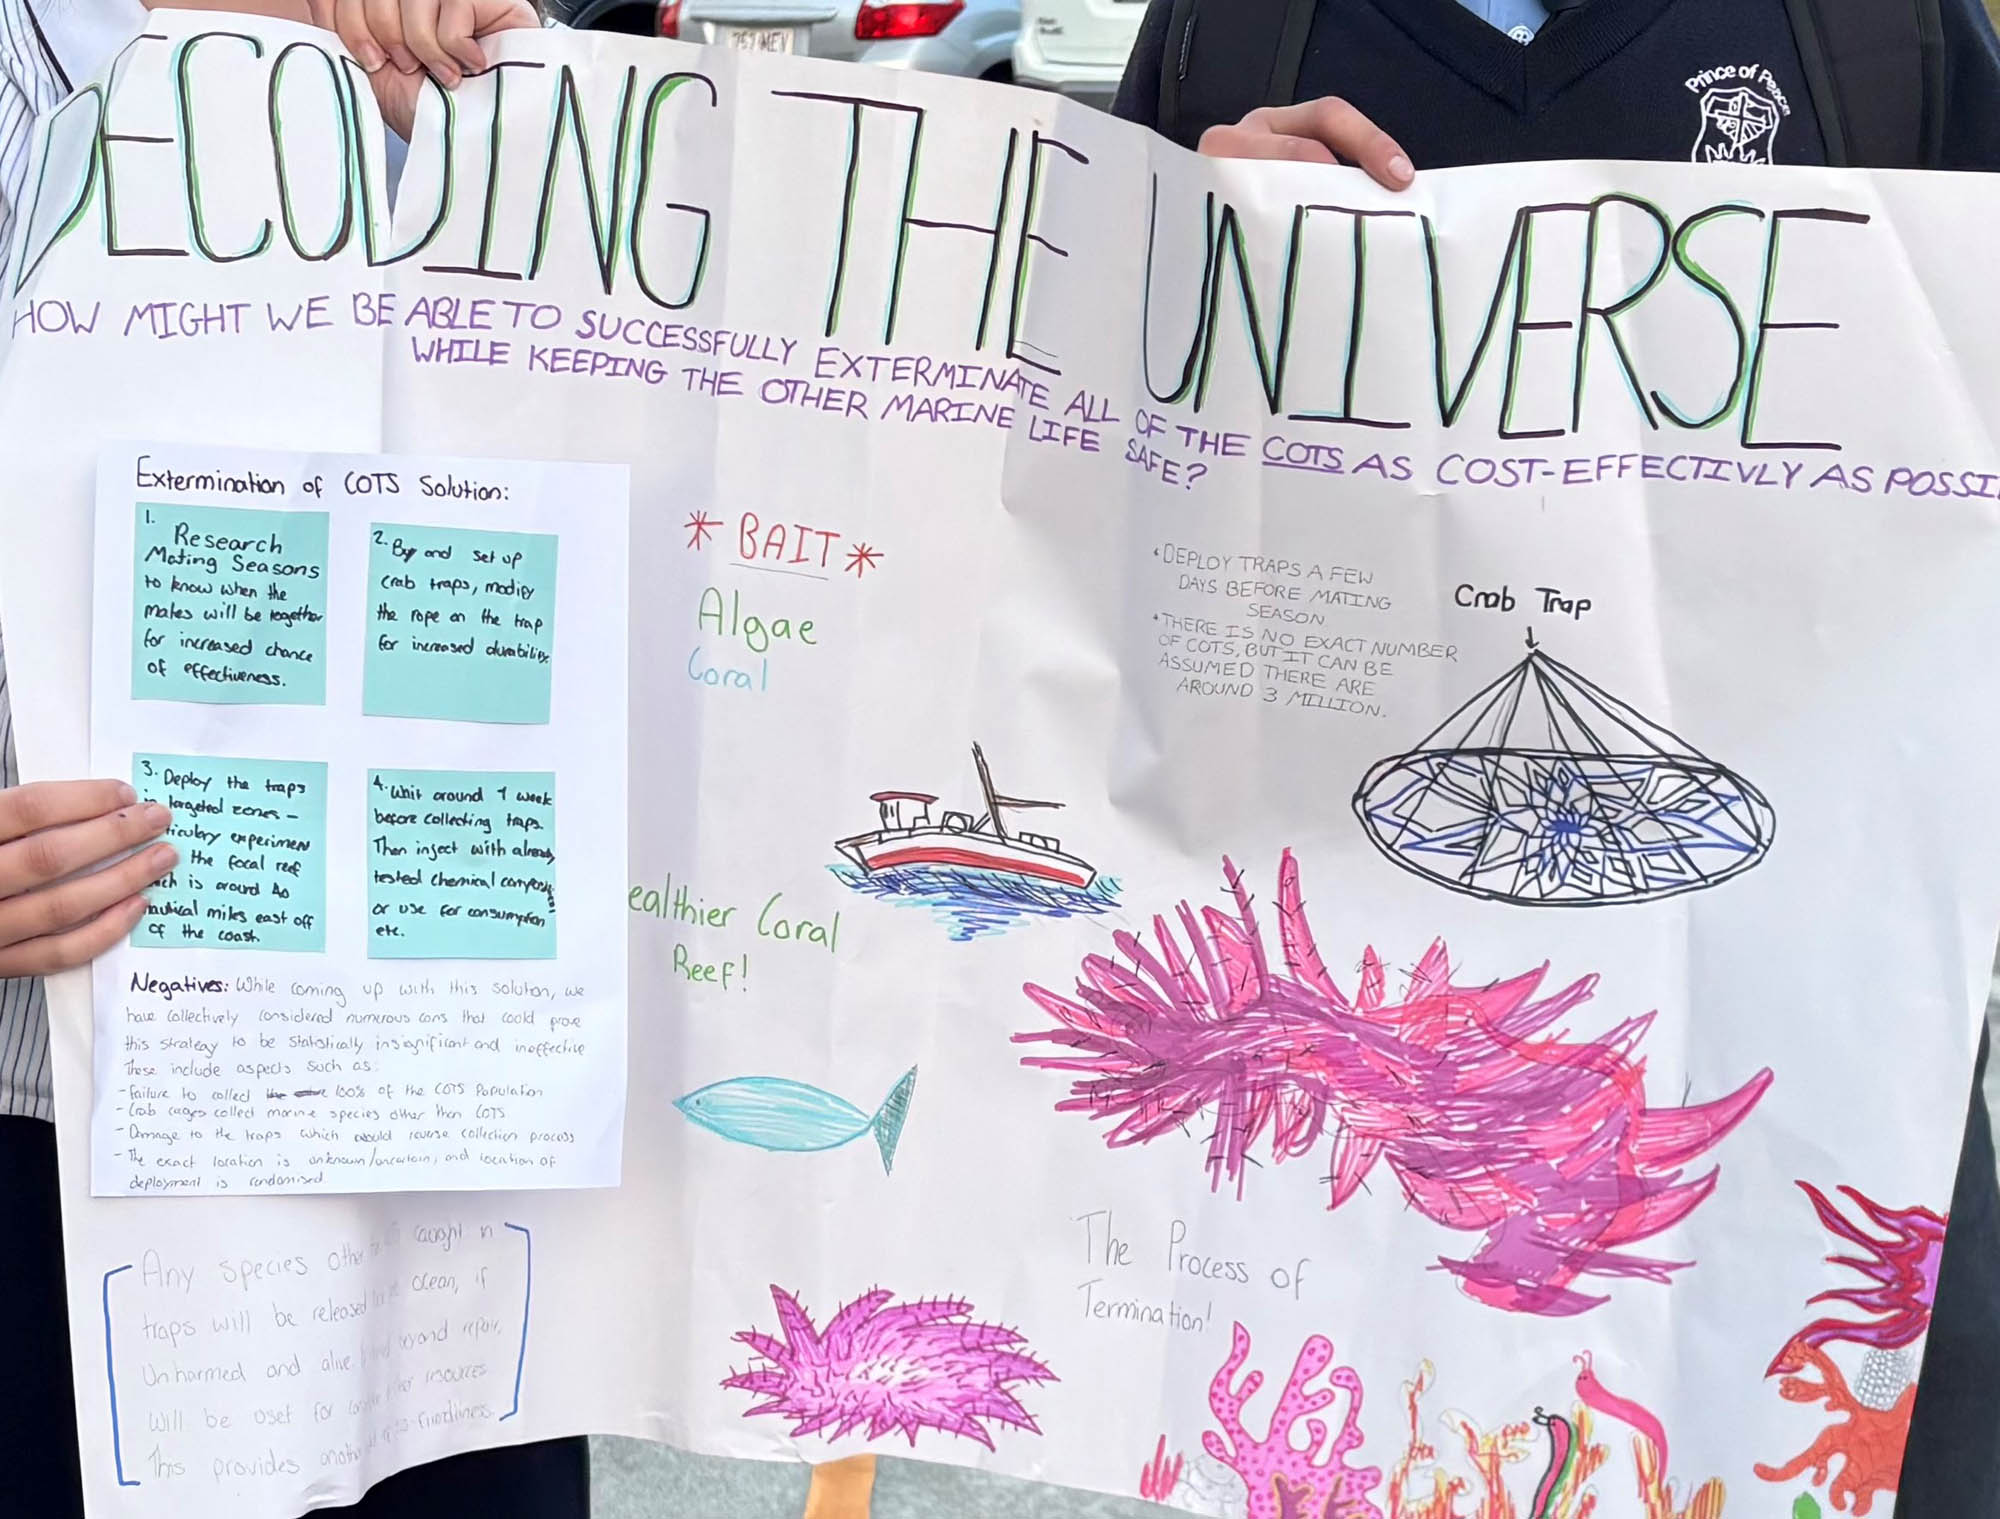 757 MEV
Prince of Peace
DECODING THE UNIVERSE
HOW MIGHT WE BE ABLE TO SUCCESSFULLY EXTERMINATE ALL OF THE COTS AS COST-EFFECTIVLY AS POSSI
WHILE KEEPING THE OTHER MARINE LIFE SAFE?
Extermination of COTS Solution:
1.
Research
Mating Seasons
to know when the
males will be together
for increased chance
of effectiveness.
2. Buy and set up
crab traps, modify
the rope on the trap
for increased durability.
3. Deploy the traps
in targeted zones –
the focal reef
is around 40
nautical miles east off
of the coast.
4. Wait around 1 week
before collecting traps.
Then inject with already
tested chemical
or use for consumption
etc.
Negatives: While coming up with this solution, we
have collectively considered numerous cons that could prove
this strategy to be statistically insignificant and ineffective
These include aspects such as:
- Failure to collect 100% of the COTS Population
- Crab cages collect marine species other than COTS
- Damage to the traps which would reverse collection process
- The exact location is unknown/uncertain, and location of
deployment is randomised
Any species other caught in
traps will be released ocean, if
Unharmed and alive. beyond repair,
Will be uset for other resources
This provides friendliness.
* BAIT *
Algae
Coral
ealthier Coral
Reef!
• DEPLOY TRAPS A FEW
DAYS BEFORE MATING
SEASON
• THERE IS NO EXACT NUMBER
OF COTS, BUT IT CAN BE
ASSUMED THERE ARE
AROUND 3 MILLION.
Crab Trap
The Process of
Termination!